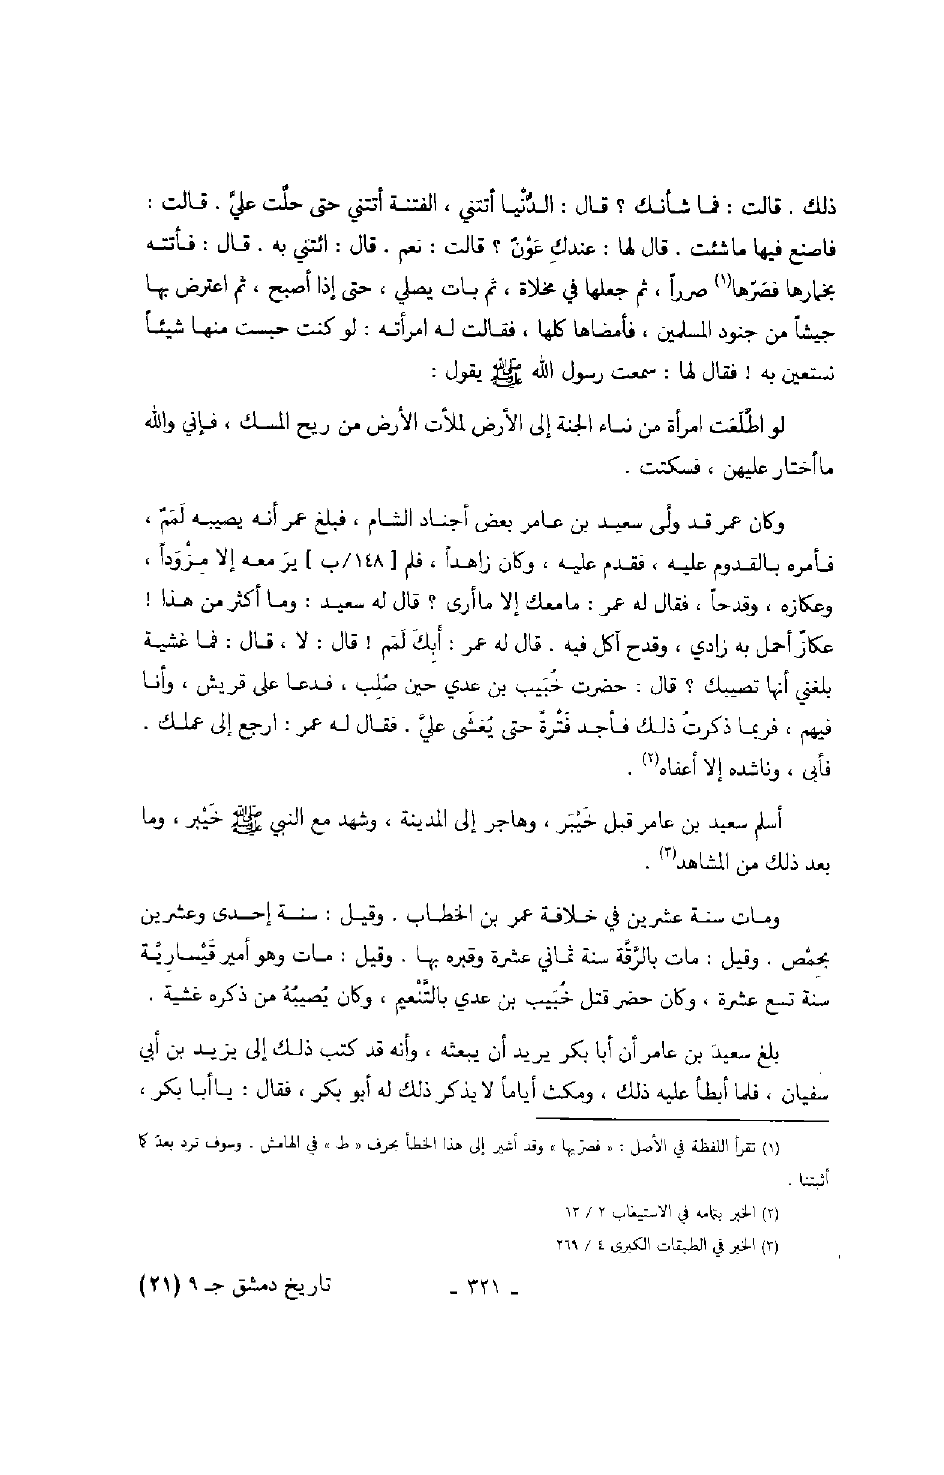 ذلك . قالت : فما شأنك ؟ قال : الدُّنْيا أتتني ، الفتنة أتتني حتى حلّت عليَّ . قالت :
فاصنع فيها ماشئت . قال لها : عندكِ عَوْنٌ ؟ قالت : نعم . قال : ائتني به . قال : فأتته
بخمارها فصَرّها(١) صرراً ، ثم جعلها في مخلاة ، ثم بات يصلي ، حتى إذا أصبح ، ثم اعترض بها
جيشاً من جنود المسلمين ، فأمضاها كلها ، فقالت له امرأته : لو كنت حبست منها شيئاً
نستعين به ! فقال لها : سمعت رسول الله ﷺ يقول :
لو اطَّلَعَت امرأة من نساء الجنة إلى الأرض لملأت الأرض من ريح المسك ، فإني والله
ماأختار عليهن ، فسكتت .
وكان عمر قد ولّى سعيد بن عامر بعض أجناد الشام ، فبلغ عمر أنه يصيبه لَمَمٌ ،
فأمره بالقدوم عليه ، فقدم عليه ، وكان زاهداً ، فلم [ ١٤٨/ب ] يَرَ معه إلا مِزْوَداً ،
وعكازه ، وقدحاً ، فقال له عمر : مامعك إلا ماأرى ؟ قال له سعيد : وما أكثر من هذا !
عكازٌ أحمل به زادي ، وقدح آكل فيه . قال له عمر : أَبِكَ لَمَم ! قال : لا ، قال : فما غشية
بلغني أنها تصيبك ؟ قال : حضرت خُبَيب بن عدي حين صُلِب ، فدعا على قريش ، وأنا
فيهم ، فربما ذكرتُ ذلك فأجد فَتْرةً حتى يُغشَى عليَّ . فقال له عمر : ارجع إلى عملك .
فأبى ، وناشده إلا أعفاه(٢) .
أسلم سعيد بن عامر قبل خَيْبَر ، وهاجر إلى المدينة ، وشهد مع النبي ﷺ خَيْبر ، وما
بعد ذلك من المشاهد(٣) .
ومات سنة عشرين في خلافة عمر بن الخطاب . وقيل : سنة إحدى وعشرين
بحمْص . وقيل : مات بالرَّقَّة سنة ثماني عشرة وقبره بها . وقيل : مات وهو أمير قَيْساريَّة
سنة تسع عشرة ، وكان حضر قتل خُبَيب بن عدي بالتَّنْعيم ، وكان يُصيبُهُ من ذكره غشية .
بلغ سعيدَ بن عامر أن أبا بكر يريد أن يبعثه ، وأنه قد كتب ذلك إلى يزيد بن أبي
سفيان ، فلما أبطأ عليه ذلك ، ومكث أياماً لايذكر ذلك له أبو بكر ، فقال : ياأبا بكر ،
(١) تقرأ اللفظة في الأصل : « فصرّبها » وقد أشير إلى هذا الخطأ بحرف « ط » في الهامش . وسوف ترد بعدُ كما
أثبتنا .
(٢) الخبر بتمامه في الاستيعاب ٢ / ١٢
(٣) الخبر في الطبقات الكبرى ٤ / ٢٦٩
ـ ٣٢١ ـ
تاريخ دمشق جـ ٩ (٢١)